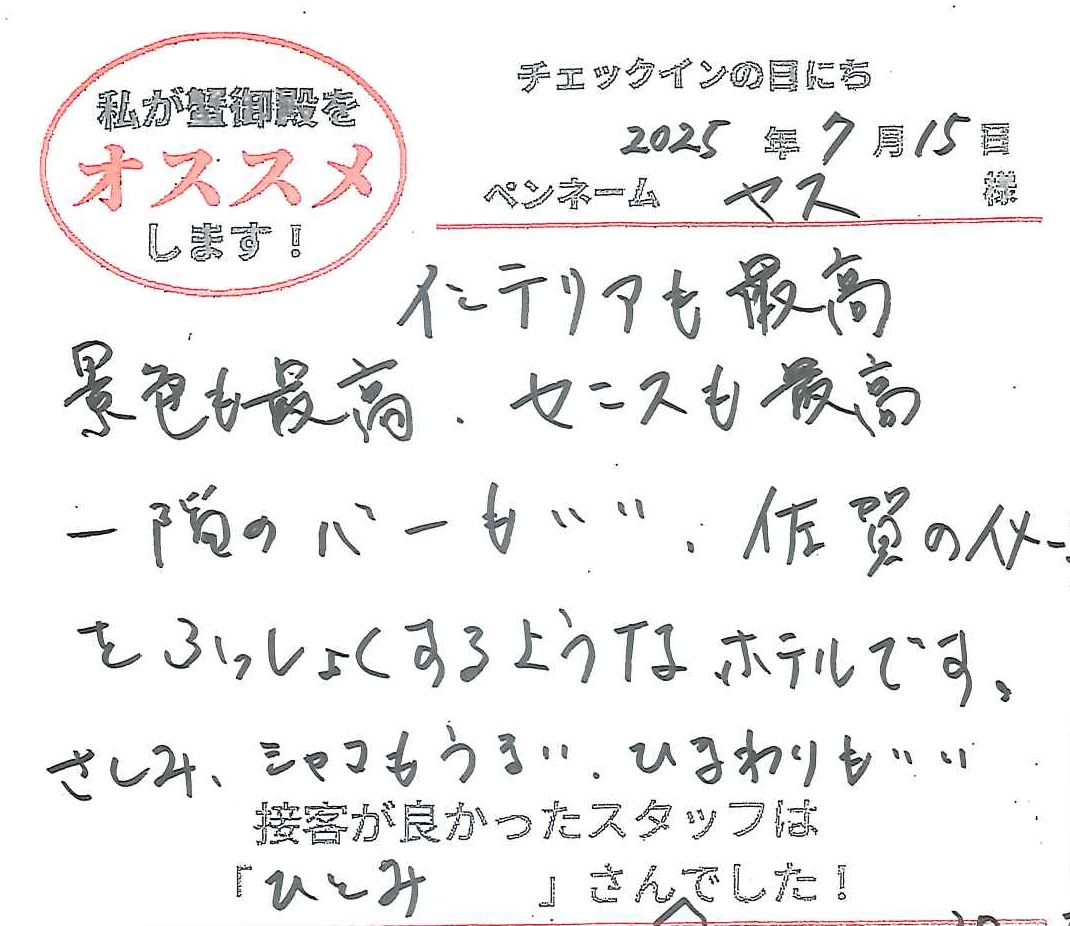 私が蟹御殿を
オススメ
します！
チェックインの日にち
2025 年 7 月 15 日
ペンネーム ヤス 様
インテリアも最高
景色も最高. センスも最高
一階のバーもいい. 佐賀のイメー
をふっしょくするようなホテルです。
さしみ、シャコもうまい. ひまわりもいい
接客が良かったスタッフは
「ひとみ 」さんでした！